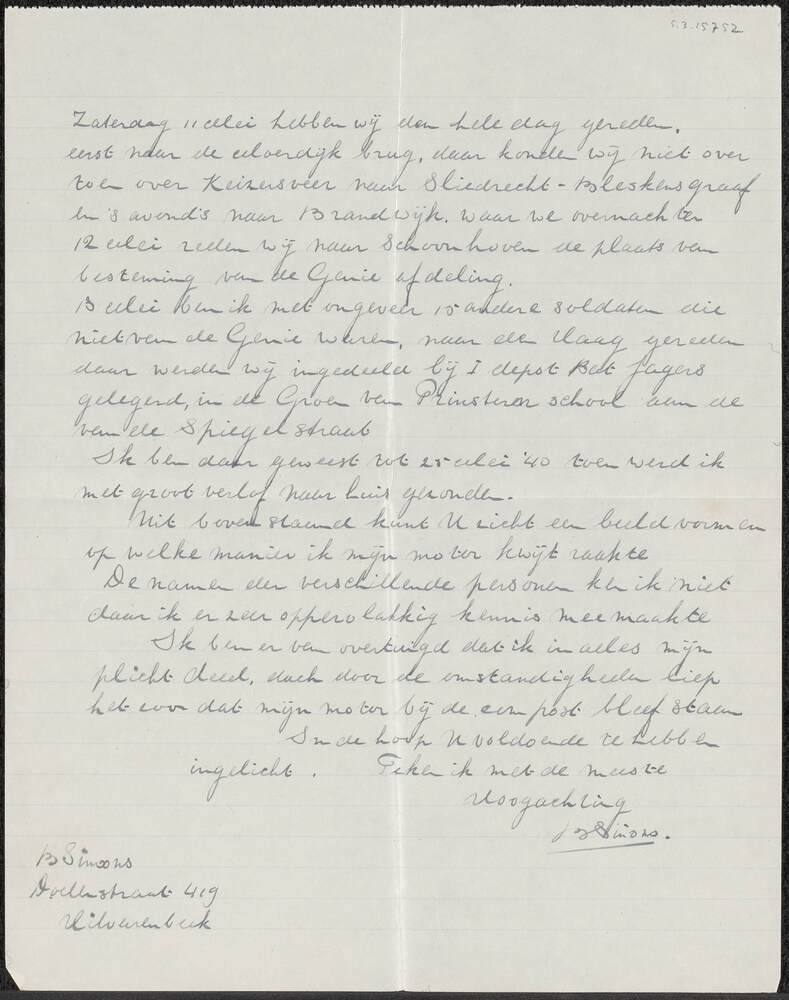 S.3.15752
Zaterdag 11 Mei hebben wij den hele dag gereden,
eerst naar de Moerdijk brug, daar konden wij niet over
toen over Keizersveer naar Sliedrecht - Bleskensgraaf
en 's avonds naar Brandwijk. waar we overnachten
12 Mei reden wij naar Schoonhoven de plaats van
besteming van de Genie afdeling.
13 Mei ben ik met ongeveer 15 andere soldaten die
niet van de Genie waren, naar den Haag gereden
daar werden wij ingedeeld bij I depot Bat Jagers
gelegerd, in de Groen van Prinsteren school aan de
van de Spiegelstraat
Ik ben daar geweest tot 25 Mei '40 toen werd ik
met groot verlof naar huis gezonden.
Uit bovenstaand kunt U zicht een beeld vormen
op welke manier ik mijn motor kwijt raakte
De namen der verschillende personen ken ik niet
daar ik er zeer oppervlakkig kennis mee maakte
Ik ben er van overtuigd dat ik in alles mijn
plicht deed, doch door de omstandigheden liep
het zoo dat mijn motor bij de com post bleef staan
In de hoop U voldoende te hebben
ingelicht. Teken ik met de meeste
Hoogachting
B Simons.
B Simons
Doelenstraat 419
Hilvarenbeek